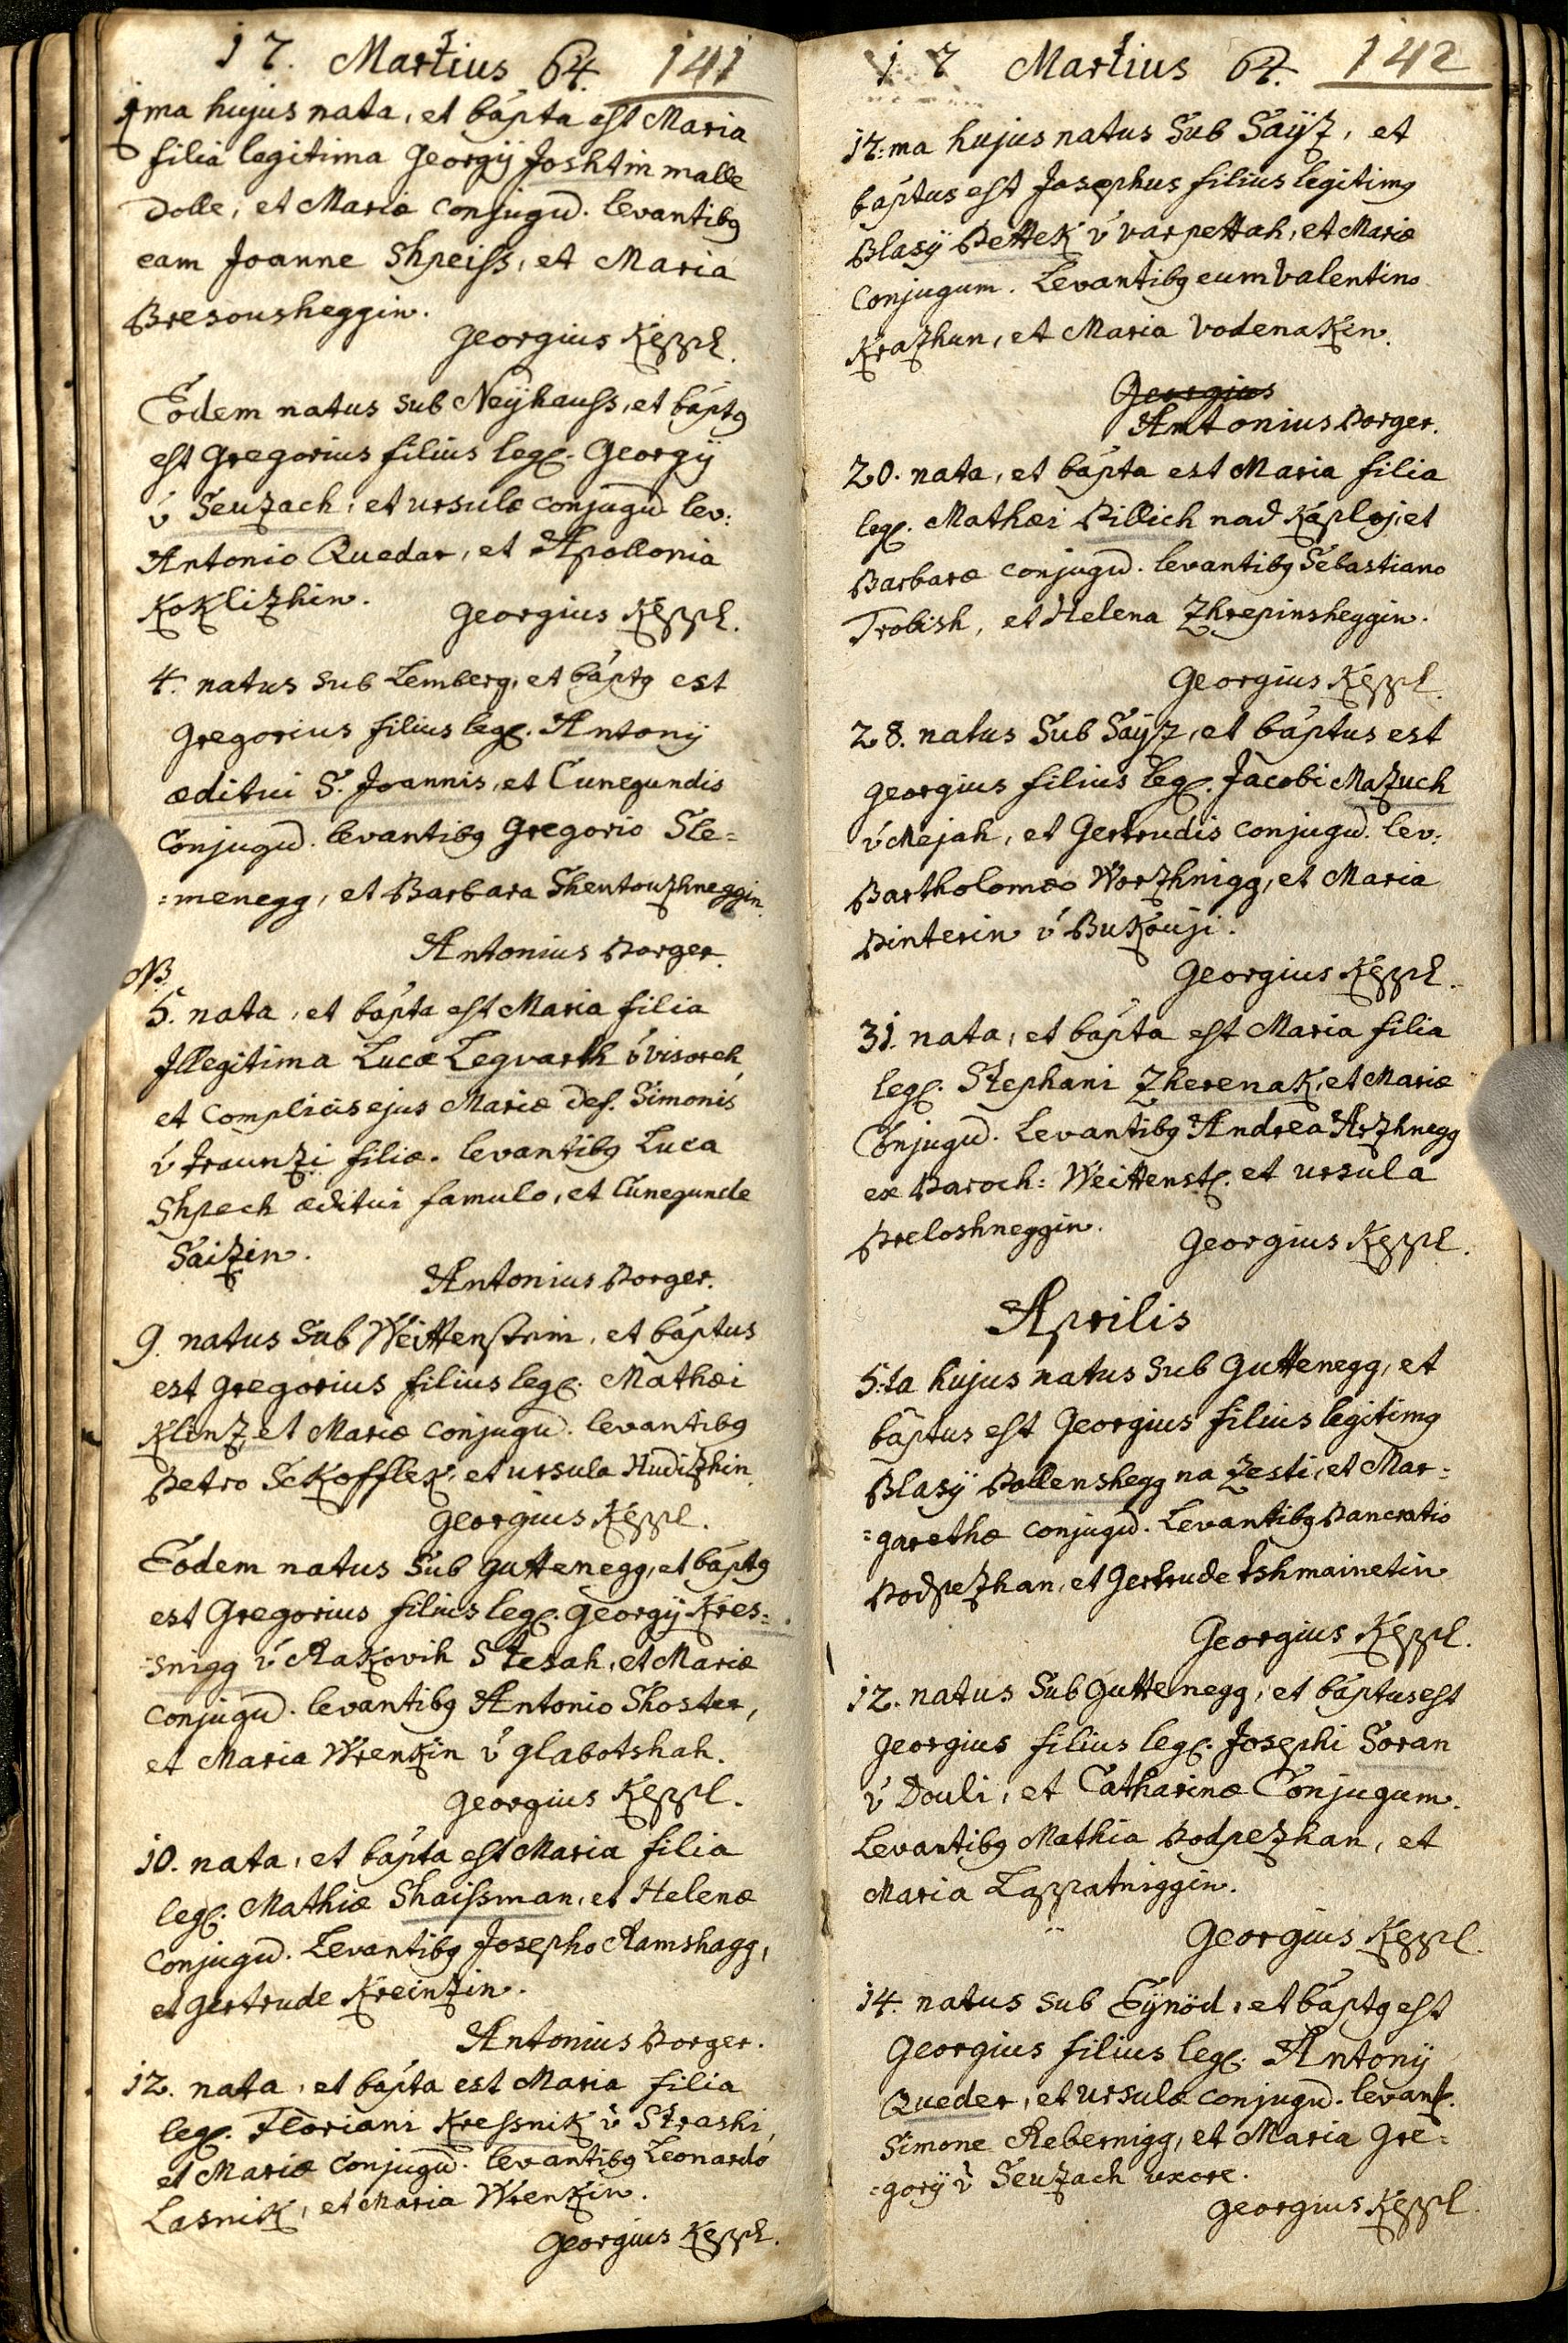 17. Martius 64. 141
1ma hujus nata, et bapta est Maria
filia legitima Georgÿ Joshtin malle
dolle, et Mariæ conjugũ. levantibg
eam Joanne Shpeiss, et Maria
Bresousheggin.
Georgius Keppl.
Eodem natus sub Neÿhauss, et baptg
est Gregorius filius leg. Georgÿ
v Seuzach, et Ursulæ conjugũ lev:
Antonio Quedar, et Apollonia
Koklizhin.
Georgius Keppl.
4. natus sub Lemberg, et baptg est
Gregorius filius leg. Antonÿ
æditui S. Joannis, et Cunegundis
Conjugũ. levantibg Gregorio Sle=
=menegg, et Barbara Shentouzhneggin.
Antonius Porger.
NB.
5. nata, et bapta est Maria filia
Illegitima Lucæ Legvarth v visoreh,
et Complicis ejus Mariæ def. Simonis
v Jraunzi filiæ. levantibg Luca
Shpech æditui famulo, et Cunegunde
Saizin.
Antonius Porger.
9. natus sub Weittenstein, et baptus
est Gregorius filius leg. Mathæi
Klinz et Mariæ conjugũ. levantibg
Petro Sckofflek, et Ursula Hudizhin.
Georgius Keppl.
Eodem natus sub Guttenegg, et baptg
est Gregorius filius leg. Georgÿ Kres=
=snigg v Rakovih Stesah, et Mariæ
conjugũ. levantibg Antonio Shoster,
et Maria Wrenkin v Glabotshah.
Georgius Keppl.
10. nata, et bapta est Maria filia
leg. Mathiæ Shaissman, et Helenæ
conjugũ. Levantibg Josepho Ramshagg,
et Gertrude Kreinzin.
Antonius Porger.
12. nata, et bapta est Maria filia
leg. Floriani Kressnik v Strashi,
et Mariæ conjugũ. levantibg Leonardo
Lasnik, et Maria Wrenkin.
Georgius Keppl.
17 Martius 64. 142
12:ma hujus natus Sub Saÿz, et
baptus est Josephus filius legitimg
Blasÿ Pettek v varpettah, et Mariæ
Conjugum. Levantibg eum Valentino
Krazhun, et Maria Vodenakin.
Georgius
Antonius Porger.
20. nata, et bapta est Maria filia
leg. Mathæi Pillich nad Kaploj, et
Barbaræ conjugũ. levantibg Sebastiano
Trobish, et Helena Zhrepinsheggin.
Georgius Keppl.
28. natus Sub Saÿz, et baptus est
Georgius filius leg. Jacobi Mazuch
v Mejah, et Gertrudis conjugũ. lev:
Bartholomæo Worzhnigg, et Maria
Pinterin v Bukouji.
Georgius Keppl.
31. nata, et bapta est Maria filia
leg. Stephani Zherenak, et Mariæ
Conjugũ. Levantibg Andrea Arzhnegg
ex Paroch: Weittenst. et Ursula
Preloshneggin.
Georgius Keppl.
Aprilis
5:ta hujus natus sub Guttenegg, et
baptus est Georgius filius legitimg
Blasÿ Pollenshegg na Zesti, et Mar=
=garethæ conjugũ. Levantibg Pancratio
Podpezhan, et Gertrude Eshmainetin
Georgius Keppl.
12. natus Sub Guttenegg, et baptus est
Georgius filius leg. Josephi Soran
v Douli, et Catharinæ Conjugum.
Levantibg Mathia Podpezhan, et
Maria Lappatniggin.
Georgius Keppl.
14. natus sub Eÿnöd, et baptg est
Georgius filius leg. Antonÿ
Queder, et Ursulæ conjugũ. levant.
Simone Rebernigg, et Maria Gre=
=gorÿ v Seuzach uxore.
Georgius Keppl